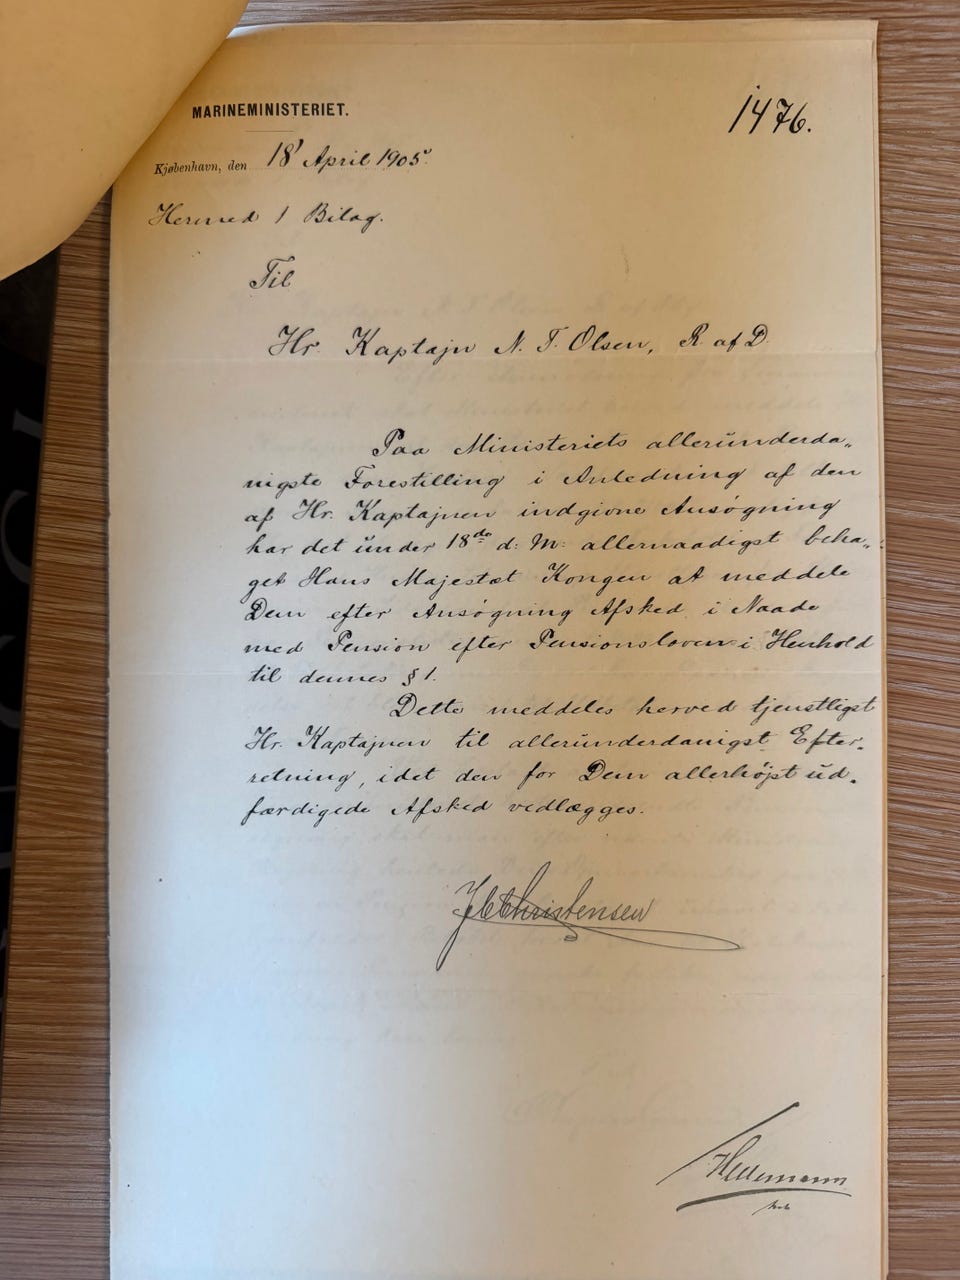 MARINEMINISTERIET.
1476.
Kjøbenhavn, den 18' April 1905.
Hermed 1 Bilag.
Til
Hr. Kaptajn N. T. Olsen, R. af D.
Paa Ministeriets allerunderda„
nigste Forestilling i Anledning af den
af Hr. Kaptajnen indgivne Ansøgning
har det under 18de d: M: allernaadigst beha„
get Hans Majestæt Kongen at meddele
Dem efter Ansøgning Afsked i Naade
med Pension efter Pensionsloven i Henhold
til dennes § 1.
Dette meddeles herved tjenstligst
Hr. Kaptajnen til allerunderdanigst Efter„
retning, idet den for Dem allerhøjst ud„
færdigede Afsked vedlægges.
JCChristensen